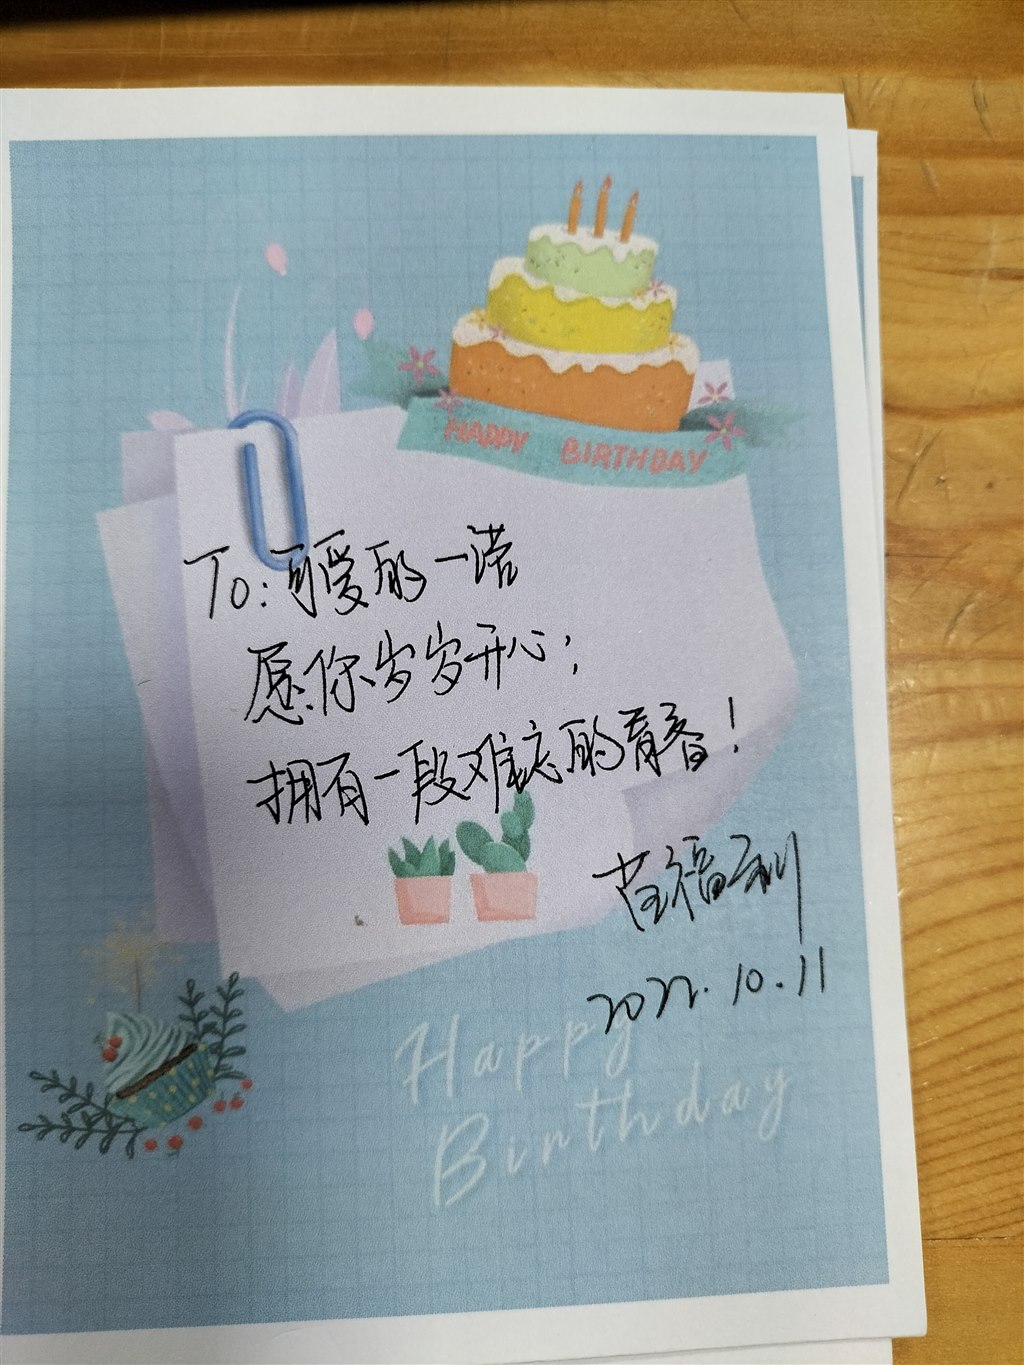 HAPPY BIRTHDAY
To:可爱的一诺
愿你岁岁开心;
拥有一段难忘的青春!
福利
2022.10.11
Happy
Birthday